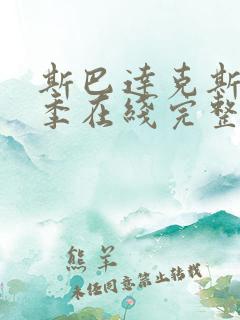 斯巴达克斯
季在线完整
熊羊
未经同意禁止转载